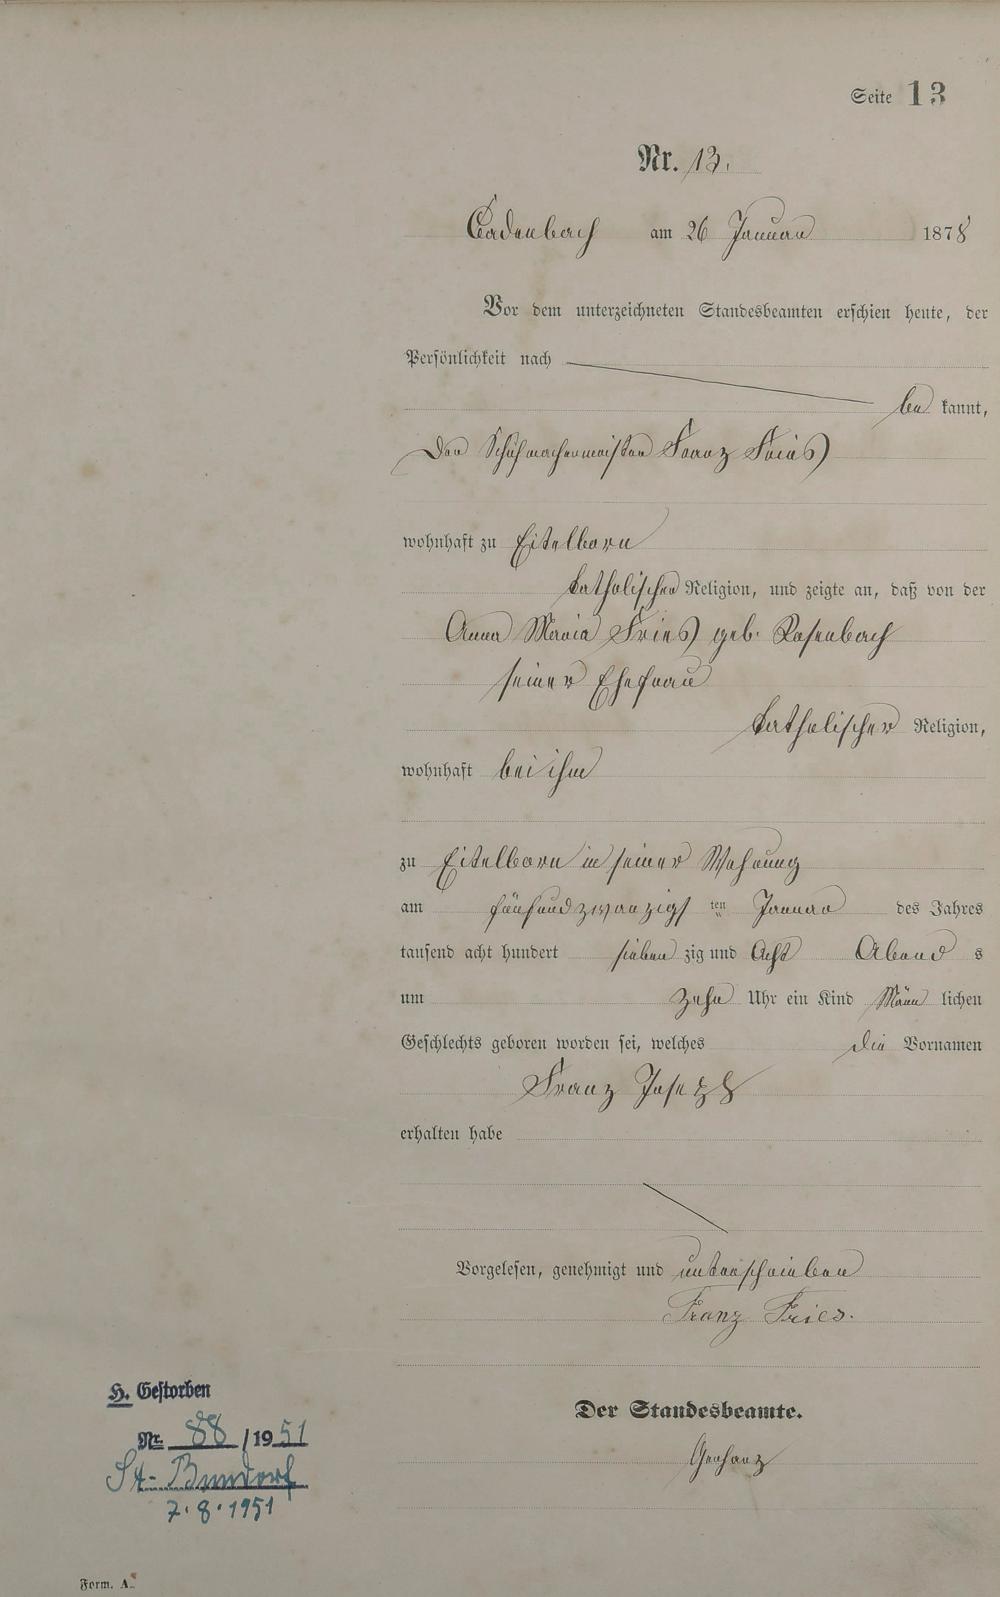 Seite 13
Nr. 13.
Cadenbach am 26 Januar 1878
Vor dem unterzeichneten Standesbeamten erschien heute, der
Persönlichkeit nach
be kannt,
Der Schuhmachermeister Franz Fries
wohnhaft zu Eitelborn
katholischer Religion, und zeigte an, daß von der
Anna Maria Fries geb. Rosenbach
seiner Ehefrau
katholischer Religion,
wohnhaft bei ihm
zu Eitelborn in seiner Wohnung
am fünfundzwanzigs ten Januar des Jahres
tausend acht hundert sieben zig und Acht Abend s
um zehn Uhr ein Kind Männ lichen
Geschlechts geboren worden sei, welches die Vornamen
Franz Joseph
erhalten habe
Vorgelesen, genehmigt und unterschrieben
Franz Fries.
H. Gestorben
Der Standesbeamte.
Nr. 88 / 1951
Gerharz
St-
7.8.1951
Form. A.